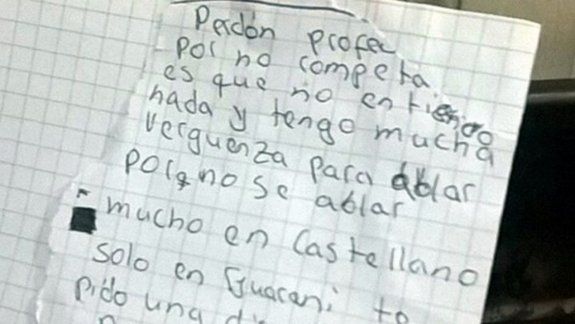 Perdón profe
por no competa
es que no entiendo
nada y tengo mucha
verguenza para ablar
porq no se ablar
mucho en Castellano
solo en Guarani to
pido una di